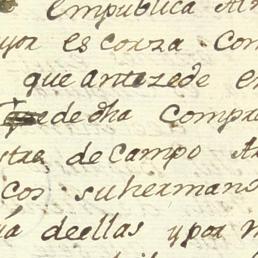 empublica Al
es conza con
que antezede e
de dha compre
de campo A
cos su hermano
deellas y por m